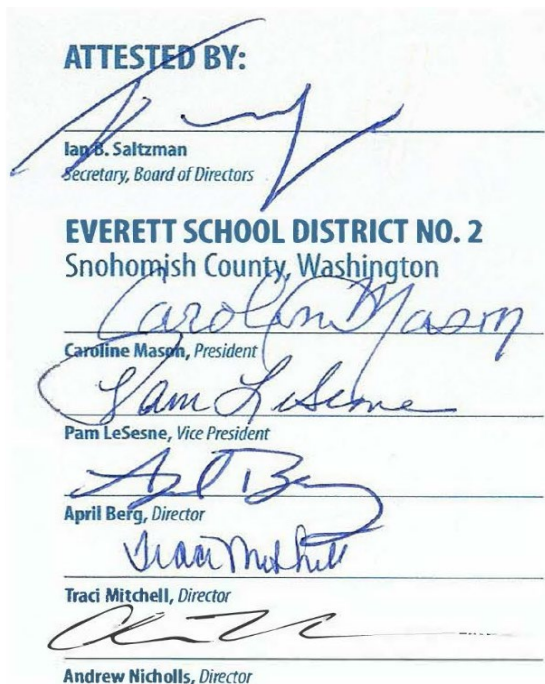 ATTESTED BY:
Ian B. Saltzman
Secretary, Board of Directors
EVERETT SCHOOL DISTRICT NO. 2
Snohomish County, Washington
Caroline Mason
Caroline Mason, President
Pam LeSesne
Pam LeSesne, Vice President
April Berg, Director
Traci Mitchell
Traci Mitchell, Director
Andrew Nicholls, Director